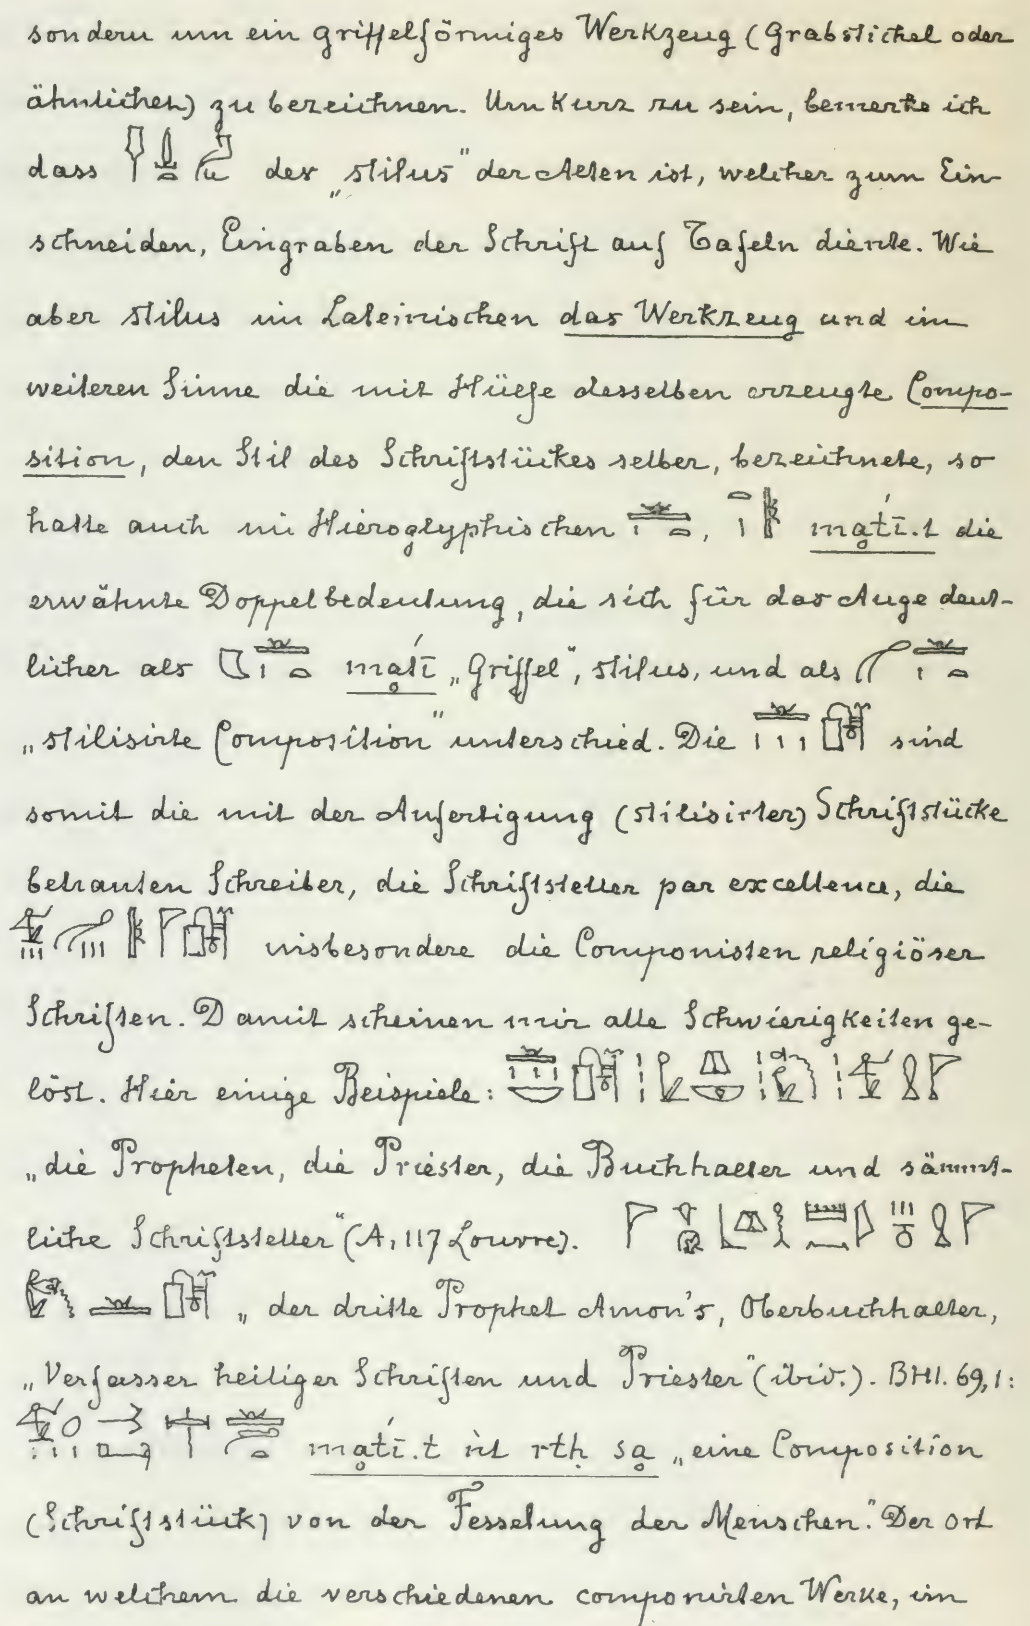 sondern um ein griffelförmiges Werkzeug (Grabstichel oder
ähnliches) zu bezeichnen. Um kurz zu sein, bemerke ich
dass der „stilus” der Alten ist, welcher zum Ein-
schneiden, Eingraben der Schrift auf Tafeln diente. Wie
aber stilus im Lateinischen das Werkzeug und im
weiteren Sinne die mit Hülfe desselben erzeugte Compo-
sition, den Stil des Schriftstückes selber, bezeichnete, so
hatte auch im Hieroglyphischen , die
erwähnte Doppelbedeutung, die sich für das Auge deut-
licher als „Griffel”, stilus, und als
„stilisirte Composition” unterschied. Die sind
somit die mit der Anfertigung (stilisirter) Schriftstücke
betrauten Schreiber, die Schriftsteller par excellence, die
insbesondere die Componisten religiöser
Schriften. Damit scheinen mir alle Schwierigkeiten ge-
löst. Hier einige Beispiele:
„die Propheten, die Priester, die Buchhalter und sämmt-
liche Schriftsteller” (A, 117 Louvre).
„der dritte Prophet Amon's, Oberbuchhalter,
„Verfasser heiliger Schriften und Priester” (ibid.). BHI. 69,1:
„eine Composition
(Schriftstück) von der Fesselung der Menschen.” Der Ort
an welchem die verschiedenen componirten Werke, im